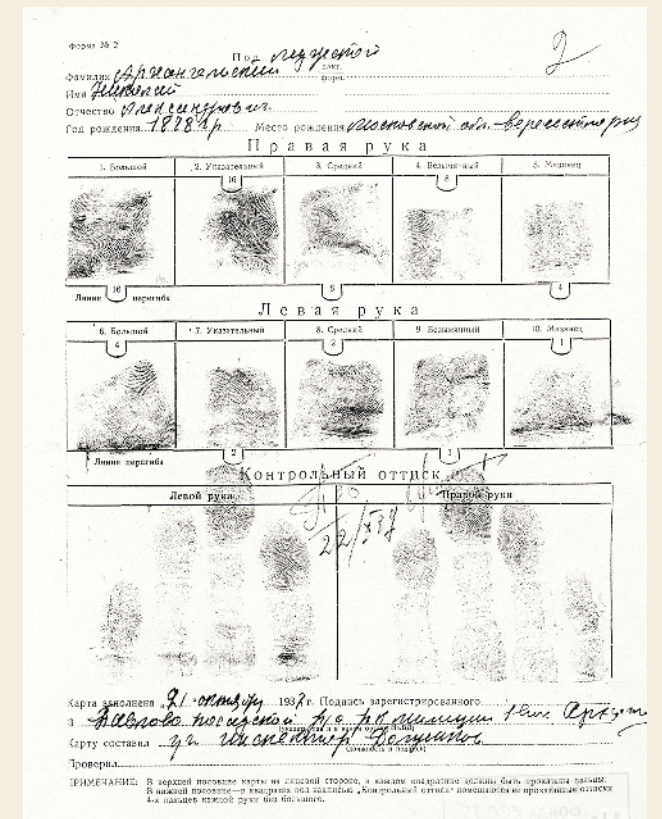 Форма № 2
2
Пол мужской
Фамилия Архангельский
Имя Николай
Отчество Александрович
Год рождения 1878 г.р. Место рождения Московской обл.
Правая рука
1. Большой 2. Указательный 3. Средний 4. Безымянный 5. Мизинец
16 8
16 8 4
Линии перегиба
Левая рука
6. Большой 7. Указательный 8. Средний 9. Безымянный 10. Мизинец
4 2 1
2 1
Линии перегиба
Контрольный оттиск
Левой руки Правой руки
22/XI 37
Карта заполнена 21 октября 1937 г. Подпись зарегистрированного
В Павлово посадской р/о рк милиции
Карту составил уч инспектор
Проверил
ПРИМЕЧАНИЕ: В верхней половине карты на лицевой стороне, в каждом квадратике должны быть прокатаны пальцы.
В нижней половине—в квадратах под надписью „Контрольный оттиск" помещаются не прокатанные оттиски
4-х пальцев каждой руки без большого.